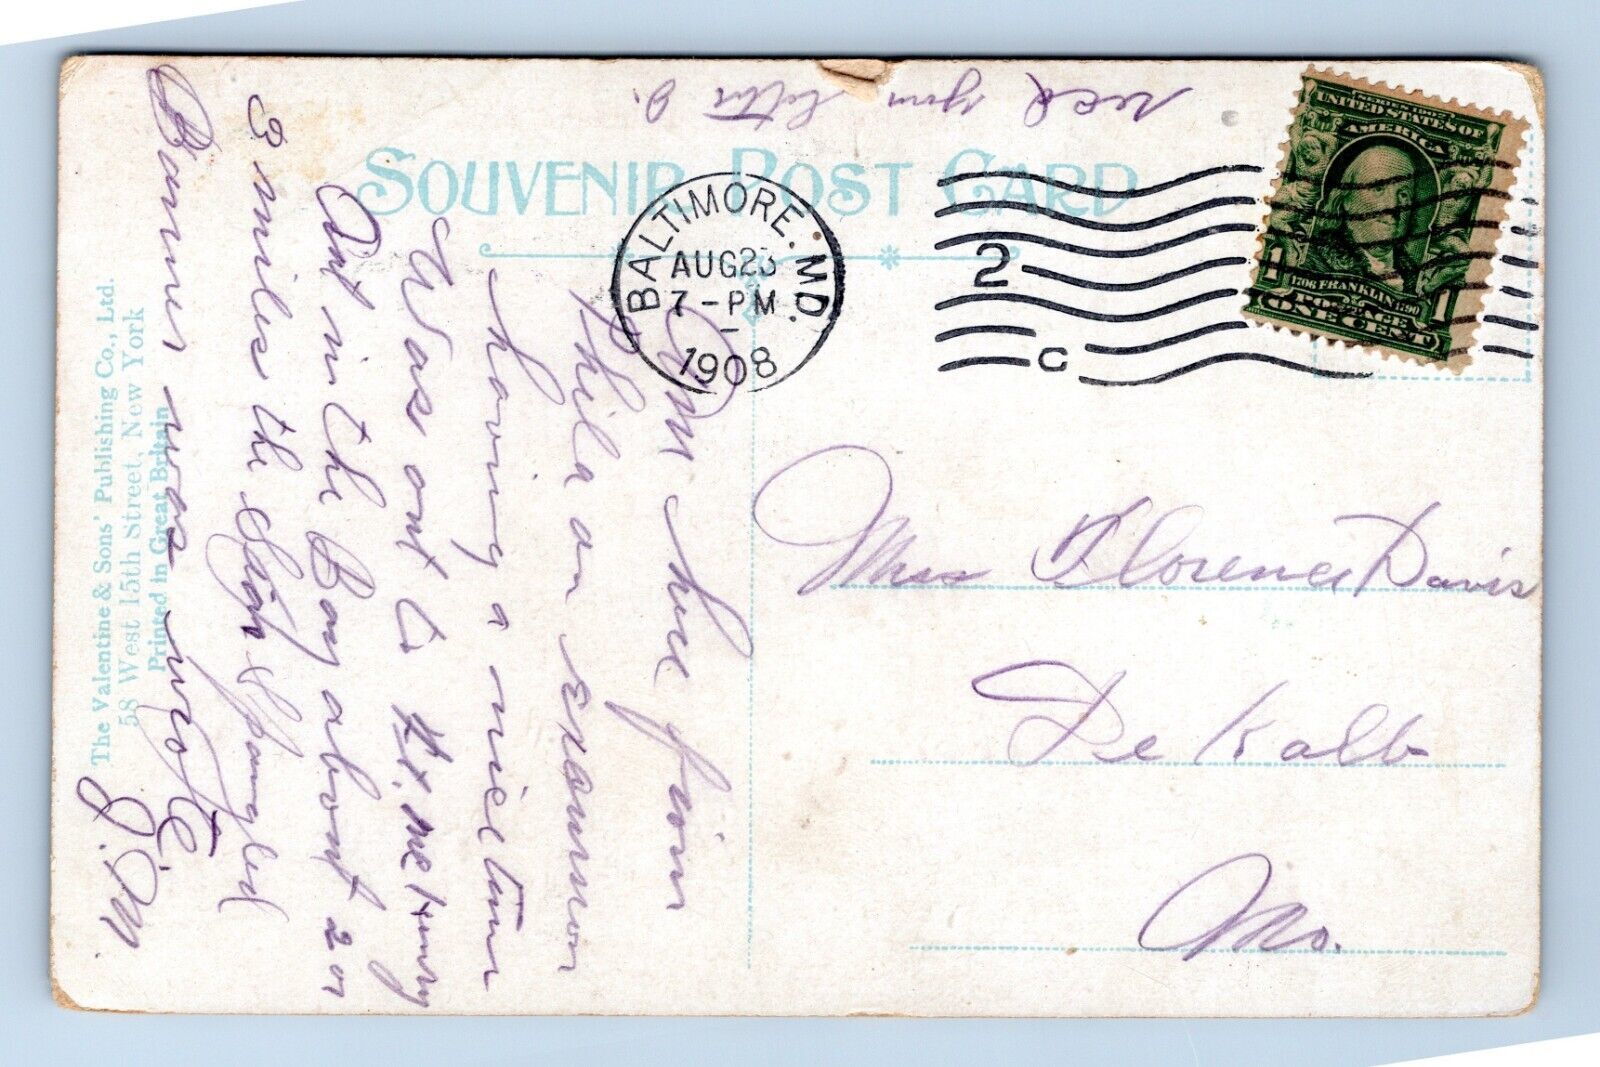 SOUVENIR POST CARD
BALTIMORE. MD.
AUG 23
7 - PM
1908
2
C
SERIES 1902
UNITED STATES OF
AMERICA
1706 FRANKLIN 1790
POSTAGE
1 ONE CENT 1
Miss Florence Davis
De Kalb
Mo.
Am here from
Phila on excursion
having a nice time
Was out to Ft. McHenry
Out in the Bay about 2 or
3 miles the Star Spangled
Banner was wrote
J. M. E.
recd your letter O.
The Valentine & Sons' Publishing Co., Ltd.
58 West 15th Street, New York
Printed in Great Britain